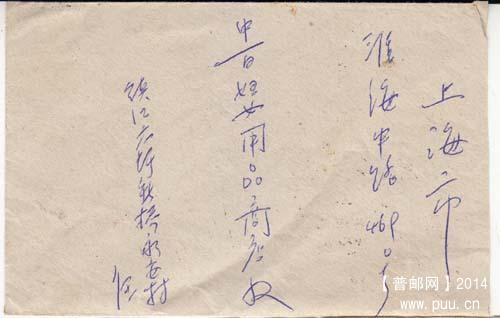 上海市
淮海中路469号
中百妇女用品商店收
镇江六圩铁桥永安村
【普邮网】2014
www.puu.cn